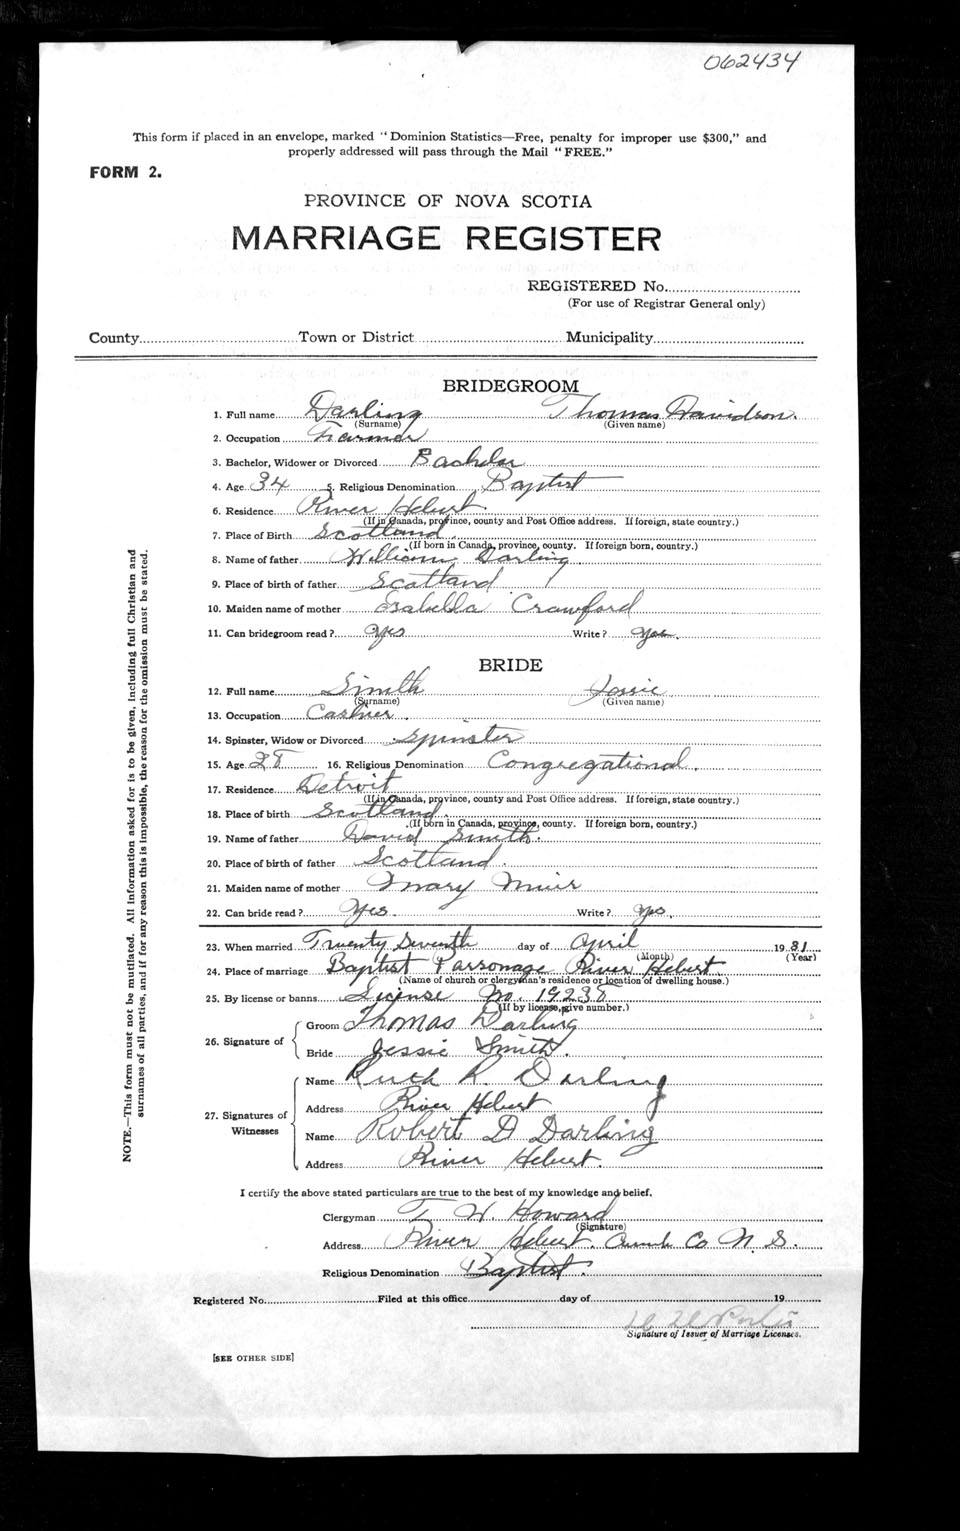 062434
This form if placed in an envelope, marked "Dominion Statistics—Free, penalty for improper use $300," and
properly addressed will pass through the Mail "FREE."
FORM 2.
PROVINCE OF NOVA SCOTIA
MARRIAGE REGISTER
REGISTERED No.
(For use of Registrar General only)
County Town or District Municipality
BRIDEGROOM
1. Full name Darling Thomas Davidson.
(Surname) (Given name)
2. Occupation Farmer
3. Bachelor, Widower or Divorced Bachelor
4. Age 34 5. Religious Denomination Baptist
6. Residence River Hebert.
(If in Canada, province, county and Post Office address. If foreign, state country.)
7. Place of Birth Scotland.
(If born in Canada, province, county. If foreign born, country.)
8. Name of father William Darling
9. Place of birth of father Scotland
10. Maiden name of mother Isabella Crawford
11. Can bridegroom read? Yes Write? Yes.
BRIDE
12. Full name Smith Jessie
(Surname) (Given name)
13. Occupation Cashier.
14. Spinster, Widow or Divorced Spinster
15. Age 28 16. Religious Denomination Congregational.
17. Residence Detroit
(If in Canada, province, county and Post Office address. If foreign, state country.)
18. Place of birth Scotland.
(If born in Canada, province, county. If foreign born, country.)
19. Name of father David Smith.
20. Place of birth of father Scotland.
21. Maiden name of mother Mary Muir
22. Can bride read? Yes. Write? Yes.
23. When married Twenty Seventh day of April 1931
(Month) (Year)
24. Place of marriage Baptist Parsonage River Hebert.
(Name of church or clergyman's residence or location of dwelling house.)
25. By license or banns License No. 19238
(If by license, give number.)
26. Signature of Groom Thomas Darling
Bride Jessie Smith.
27. Signatures of Witnesses Name Ruth R. Darling
Address River Hebert
Name Robert D Darling
Address River Hebert.
I certify the above stated particulars are true to the best of my knowledge and belief.
Clergyman T. W. Howard
(Signature)
Address River Hebert. Cumb. Co N. S.
Religious Denomination Baptist.
Registered No. Filed at this office day of 19
Signature of Issuer of Marriage Licenses.
[SEE OTHER SIDE]
NOTE.—This form must not be mutilated. All information asked for is to be given, including full Christian and
surnames of all parties, and if for any reason this is impossible, the reason for the omission must be stated.